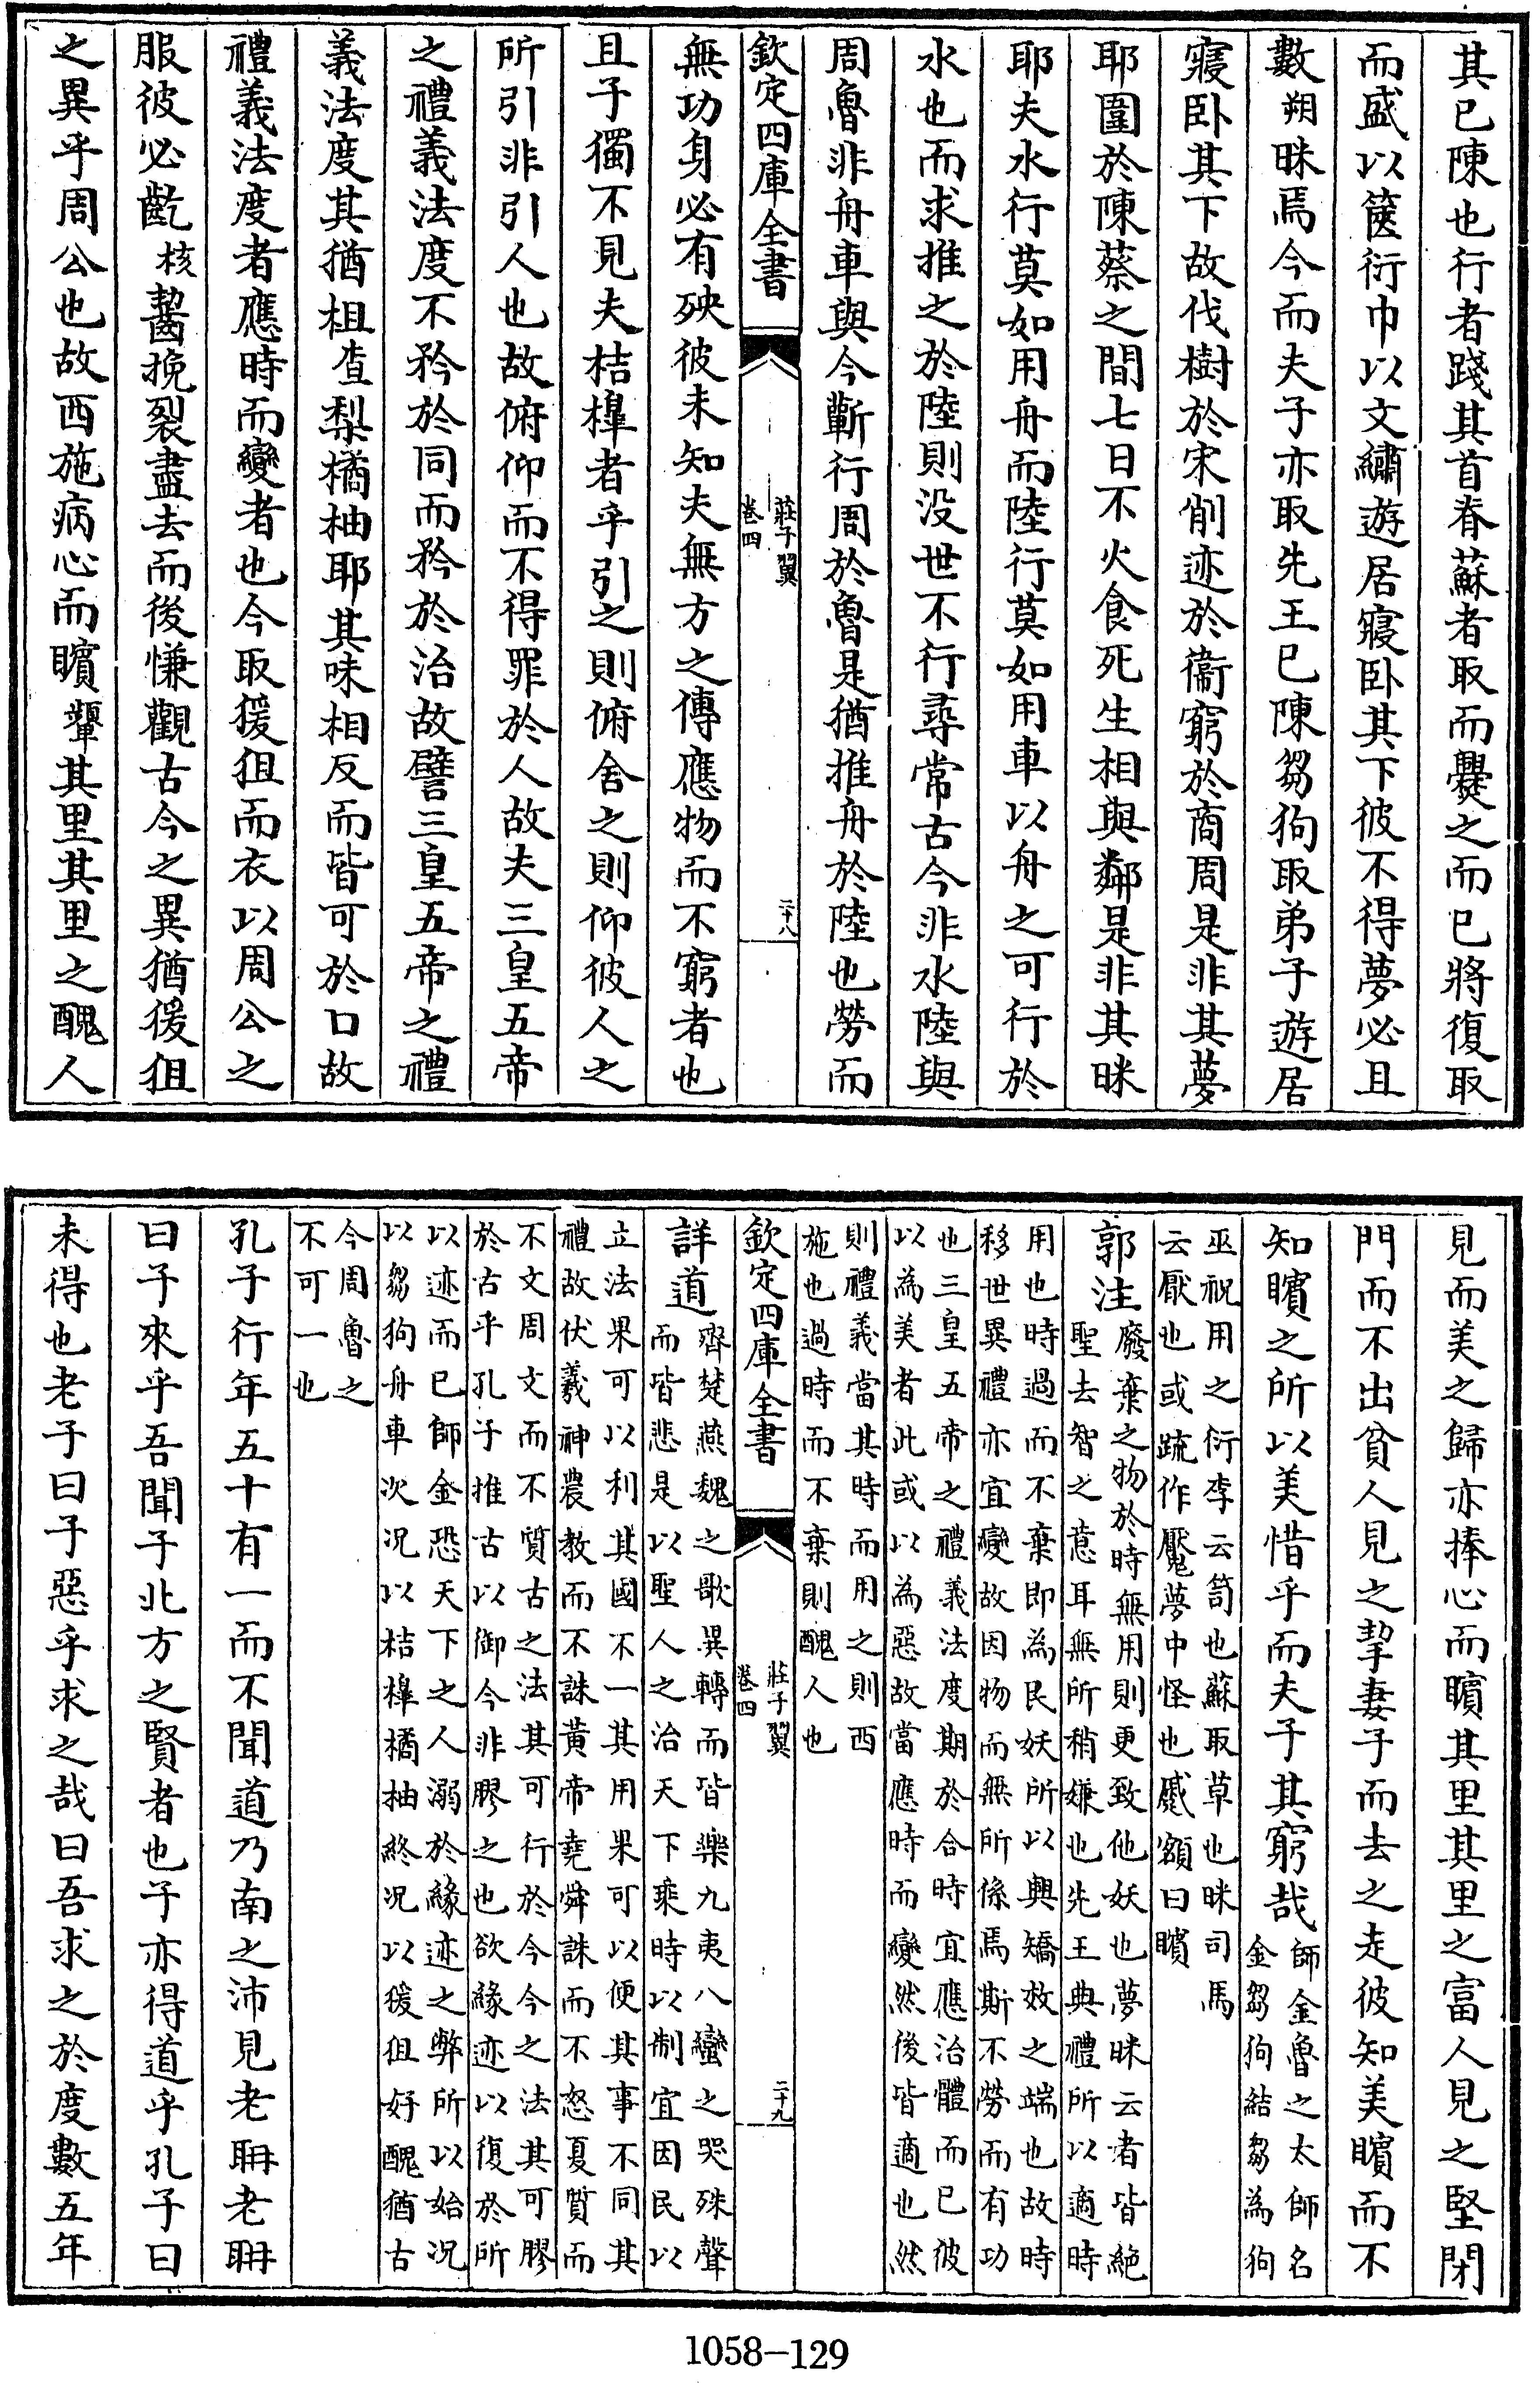 其已陳也行者踐其首脊蘇者取而爨之而已將復取
而盛以篋衍巾以文繡遊居寢卧其下彼不得夢必且
數朔眯焉今而夫子亦取先王已陳芻狗取弟子遊居
寢卧其下故伐樹於宋削迹於衞窮於商周是非其夢
耶圍於陳蔡之間七日不火食死生相與鄰是非其眯
耶夫水行莫如用舟而陸行莫如用車以舟之可行於
水也而求推之於陸則没世不行尋常古今非水陸與
周魯非舟車與今蘄行周於魯是猶推舟於陸也勞而
欽定四庫全書
莊子翼
卷四
二十八
無功身必有殃彼未知夫無方之傳應物而不窮者也
且子獨不見夫桔槹者乎引之則俯舍之則仰彼人之
所引非引人也故俯仰而不得罪於人故夫三皇五帝
之禮義法度不矜於同而矜於治故譬三皇五帝之禮
義法度其猶柤查梨橘柚耶其味相反而皆可於口故
禮義法度者應時而變者也今取猨狙而衣以周公之
服彼必齕核齧挽裂盡去而後慊觀古今之異猶猨狙
之異乎周公也故西施病心而矉顰其里其里之醜人
見而美之歸亦捧心而矉其里其里之富人見之堅閉
門而不出貧人見之挈妻子而去之走彼知美矉而不
知矉之所以美惜乎而夫子其窮哉
師金魯之太師名
金芻狗結芻為狗
巫祝用之衍李云笥也蘇取草也眯司馬
云厭也或疏作魘夢中怪也蹙額曰矉
郭注
廢棄之物於時無用則更致他妖也夢眯云者皆絶
聖去智之意耳無所稍嫌也先王典禮所以適時
用也時過而不棄即為民妖所以興矯效之端也故時
移世異禮亦宜變故因物而無所係焉斯不勞而有功
也三皇五帝之禮義法度期於合時宜應治體而已彼
以為美者此或以為惡故當應時而變然後皆適也然
則禮義當其時而用之則西
施也過時而不棄則醜人也
欽定四庫全書
莊子翼
卷四
二十九
詳道
齊楚燕魏之歌異轉而皆樂九夷八蠻之哭殊聲
而皆悲是以聖人之治天下乘時以制宜因民以
立法果可以利其國不一其用果可以便其事不同其
禮故伏羲神農教而不誅黃帝堯舜誅而不怒夏質而
不文周文而不質古之法其可行於今今之法其可膠
於古乎孔子推古以御今非膠之也欲緣迹以復於所
以迹而已師金恐天下之人溺於緣迹之弊所以始况
以芻狗舟車次况以桔槹橘柚終况以猨狙好醜猶古
今周魯之
不可一也
孔子行年五十有一而不聞道乃南之沛見老聃老聃
曰子來乎吾聞子北方之賢者也子亦得道乎孔子曰
未得也老子曰子惡乎求之哉曰吾求之於度數五年
1058-129